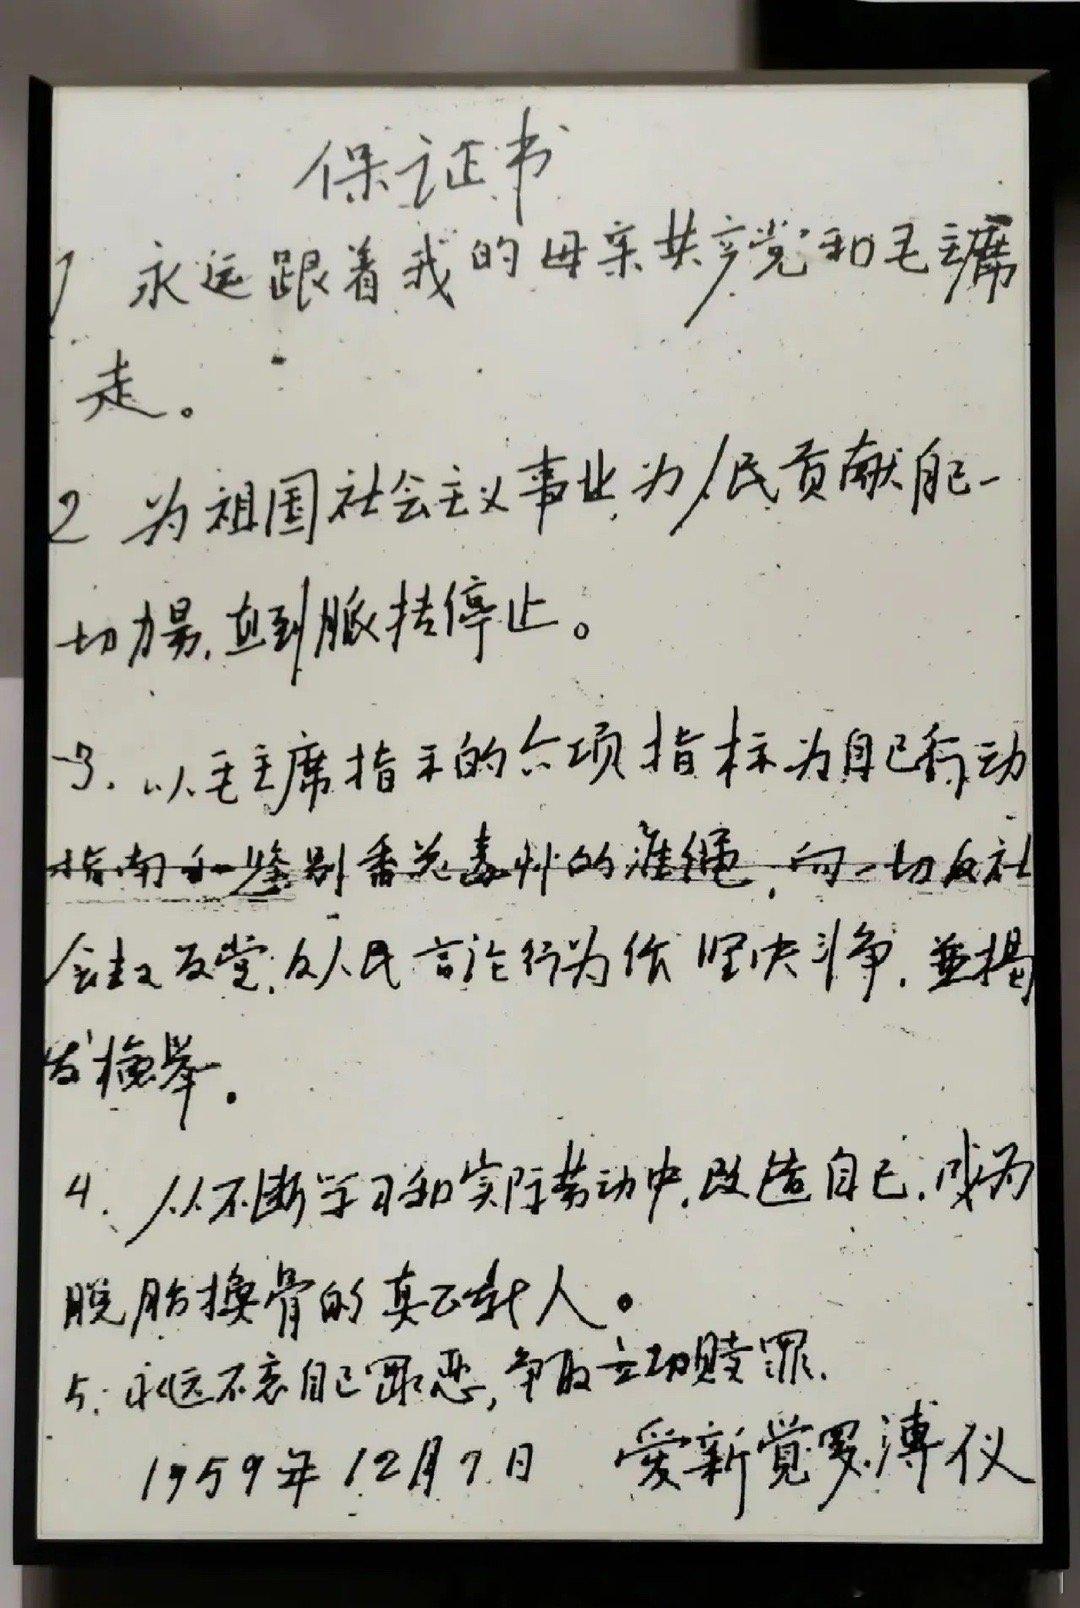 保证书
1 永远跟着我的母亲共产党和毛主席
走。
2 为祖国社会主义事业,为人民贡献自己一
切力量,直到脉搏停止。
3. 以毛主席指示的六项指标为自己行动
指南和鉴别香花毒草的准绳,向一切反社
会主义反党,反人民言论行为作坚决斗争,並揭
发检举.
4. 从不断学习和实际劳动中,改造自己,成为
脱胎换骨的真正新人。
5. 永远不忘自己罪恶,争取立功赎罪.
1959年12月7日 爱新觉罗溥仪